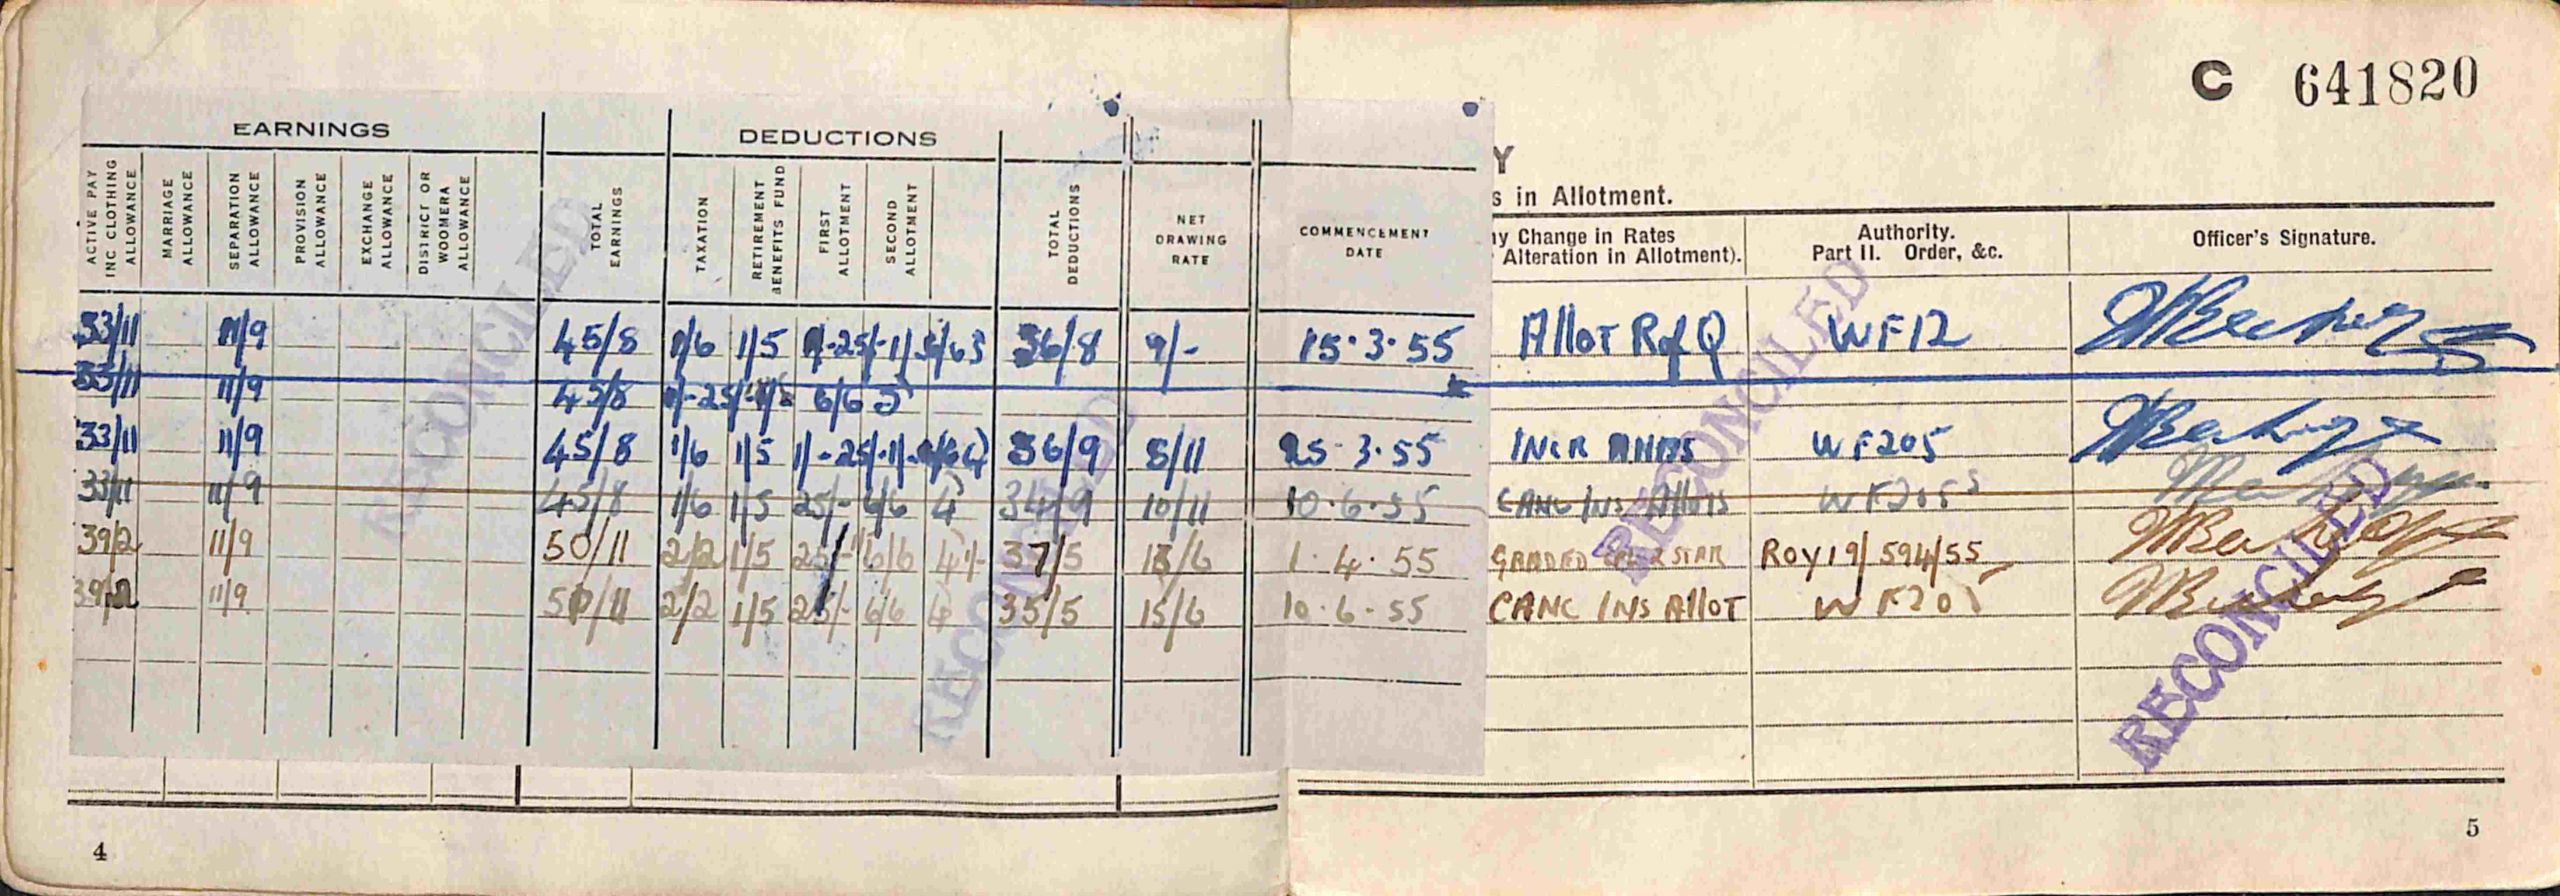 C 641820
EARNINGS DEDUCTIONS
Y
s in Allotment.
ACTIVE PAY INC CLOTHING ALLOWANCE
MARRIAGE ALLOWANCE
SEPARATION ALLOWANCE
PROVISION ALLOWANCE
EXCHANGE ALLOWANCE
DISTRICT OR WOOMERA ALLOWANCE
TOTAL EARNINGS
TAXATION
RETIREMENT BENEFITS FUND
FIRST ALLOTMENT
SECOND ALLOTMENT
TOTAL DEDUCTIONS
NET DRAWING RATE
COMMENCEMENT DATE
ny Change in Rates
Alteration in Allotment).
Authority.
Part II. Order, &c.
Officer's Signature.
33/11 11/9 45/8 1/6 1/5 36/8 9/- 15.3.55 Allot R of Q WF12
33/11 11/9 45/8
33/11 11/9 45/8 1/6 1/5 1/- 25/- 1/- 36/9 8/11 25.3.55 INCR WF205
33/11 11/9 45/8 1/6 1/5 25/- 6/6 4 34/9 10/11 10.6.55 CANC INS Allots WF205
39/2 11/9 50/11 2/2 1/5 25/- 6/6 4 1/- 37/5 13/6 1.4.55 GRADED 2 STAR ROY19/594/55
39/2 11/9 50/11 2/2 1/5 25/- 6/6 4 35/5 15/6 10.6.55 CANC INS Allot WF205
RECONCILED
RECONCILED
RECONCILED
RECONCILED
4
5